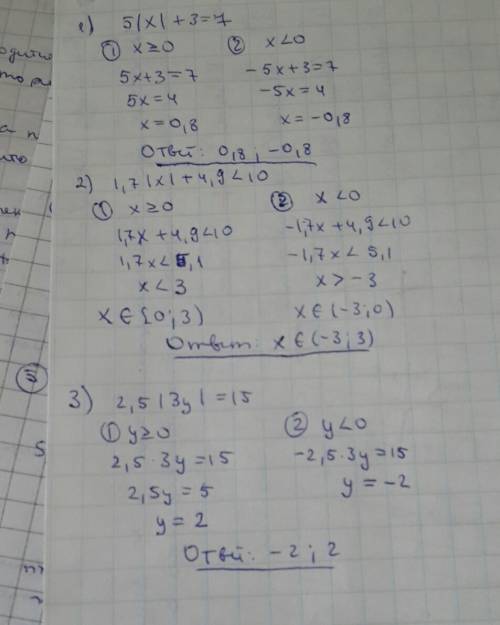 1) 5|x| + 3 = 7
① x ≥ 0 ② x < 0
5x + 3 = 7 -5x + 3 = 7
5x = 4 -5x = 4
x = 0,8 x = -0,8
Ответ: 0,8 ; -0,8
2) 1,7|x| + 4,9 < 10
① x ≥ 0 ② x < 0
1,7x + 4,9 < 10 -1,7x + 4,9 < 10
1,7x < 5,1 -1,7x < 5,1
x < 3 x > -3
x ∈ [0 ; 3) x ∈ (-3 ; 0)
Ответ: x ∈ (-3 ; 3)
3) 2,5 |3y| = 15
① y ≥ 0 ② y < 0
2,5 · 3y = 15 -2,5 · 3y = 15
2,5y = 5 y = -2
y = 2
Ответ: -2 ; 2